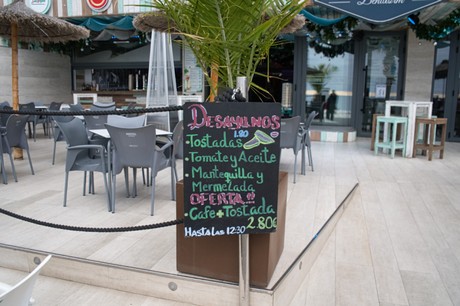 Benidorm
DESAYUNOS
1.80
Tostadas
• Tomate y Aceite
• Mantequilla y
Mermelada
OFERTA!!
• Cafe + Tostada
2.80
HASTA LAS 12:30